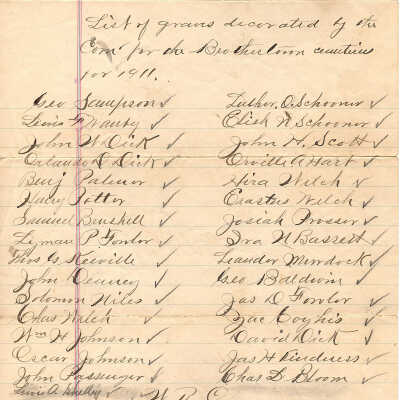 List of graves decorated by the
Com' for the Brothertown cemeteries
for 1911.
Geo Sampson ✓
Lewis F Wauby ✓
John W Dick ✓
Orlando D Dick ✓
Benj Palmer ✓
Henry Totter ✓
Samuel Benshell ✓
Lyman P Fowler ✓
Thos G. Reville ✓
John Denney ✓
Solomon Niles ✓
Chas Welch ✓
Wm H Johnson ✓
Oscar Johnson ✓
John Passenger ✓
Lewis A
Luther O. Schooner ✓
Elish N Schooner ✓
John H. Scott ✓
Orville A Hart ✓
Hira Welch ✓
Erastus Welch ✓
Josiah Prosser ✓
Ira N Bassett ✓
Leander Murdock ✓
Geo Baldwin ✓
Jas D Fowler ✓
Zac Coyhis ✓
David Dick ✓
Jas H Kindness ✓
Chas D. Bloom ✓